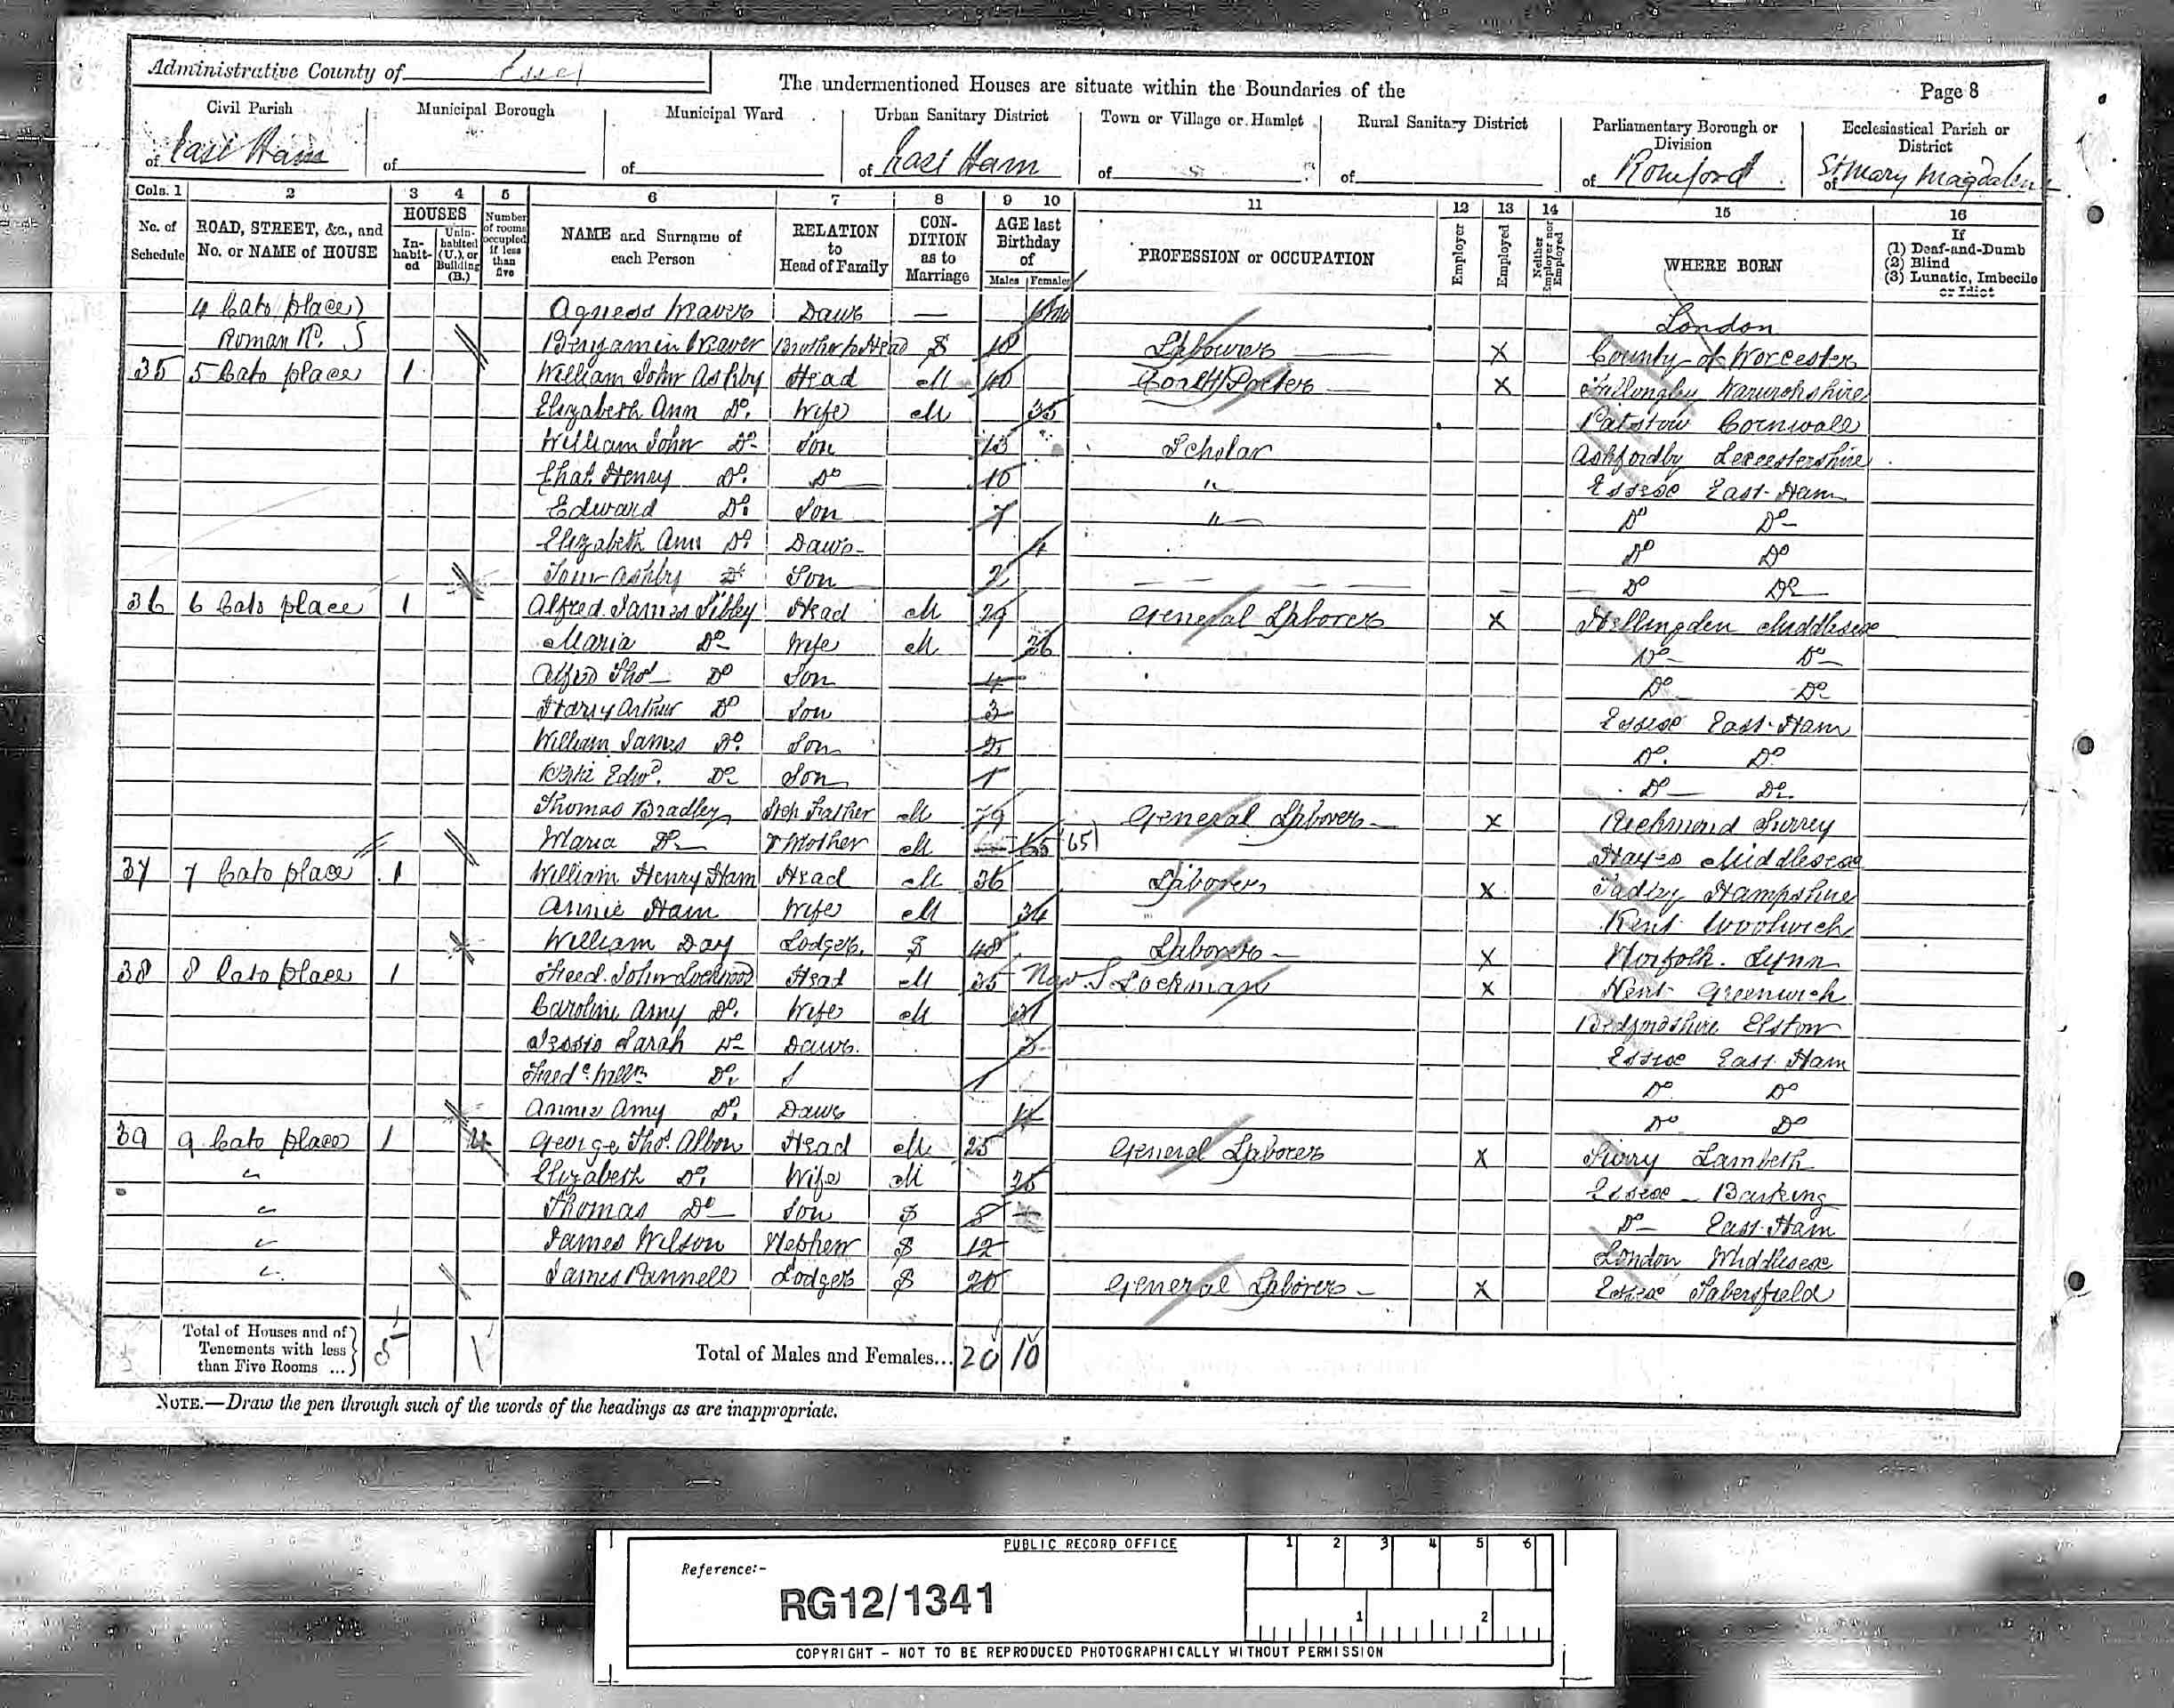 Administrative County of Essex
The undermentioned Houses are situate within the Boundaries of the
Page 8
Civil Parish of East Ham
Municipal Borough of
Municipal Ward of
Urban Sanitary District of East Ham
Town or Village or Hamlet of
Rural Sanitary District of
Parliamentary Borough or Division of Romford
Ecclesiastical Parish or District of St Mary Magdalene
Cols. 1 2 3 4 5 6 7 8 9 10 11 12 13 14 15 16
No. of Schedule
ROAD, STREET, &c., and No. or NAME of HOUSE
HOUSES
In-habit-ed
Unin-habited (U.), or Building (B.)
Number of rooms occupied if less than five
NAME and Surname of each Person
RELATION to Head of Family
CON-DITION as to Marriage
AGE last Birthday of
Males Females
PROFESSION or OCCUPATION
Employer
Employed
Neither Employer nor Employed
WHERE BORN
If
(1) Deaf-and-Dumb
(2) Blind
(3) Lunatic, Imbecile
or Idiot
4 Cato place Agness Weaver Daur — London
Roman Rd. Benjamin Weaver Brother to Head S 18 Labourer X County of Worcester
35 5 Cato place 1 William John Ashby Head M 40 Porter X Fillongley Warwickshire
Elizabeth Ann Do. Wife M 35 Patstow Cornwall
William John Do Son 13 Scholar Ashfordby Leicestershire
Chas. Henry Do. Do 10 " Essex East Ham
Edward Do. Son 7 " Do Do
Elizabeth Ann Do Daur 4 Do Do
Ashby Do Son 2 Do Do
36 6 Cato place 1 Alfred James Sibley Head M 29 General Laborer X Hellingden Middlesex
Maria Do Wife M 36 Do Do
Alfred Thos Do Son 4 Do Do
Harry Arthur Do Son 3 Essex East Ham
William James Do. Son 2 Do. Do
Edwd. Do Son 1 Do Do.
Thomas Bradley Step Father M 79 General Laborer X Richmond Surrey
Maria Do Mother M 65 (65) Hayes Middlesex
37 7 Cato place 1 William Henry Ham Head M 36 Laborer X Tadley Hampshire
Annie Ham Wife M 34 Kent Woolwich
William Day Lodger S 48 Laborer X Norfolk. Lynn
38 8 Cato place 1 Fred. John Lockwood Head M 35 Nav. S Lockman X Kent Greenwich
Caroline Amy Do. Wife M 31 Bedfordshire Elstow
Jessie Sarah Do Daur. 3 Essex East Ham
Fredc. Willm Do. S 1 Do Do
Annie Amy Do. Daur 4 Do Do
39 9 Cato place 1 4 George Thos. Albon Head M 25 General Laborer X Surry Lambeth
" Elizabeth Do. Wife M 25 Essex Barking
" Thomas Do Son S 5 Do East Ham
" James Wilson Nephew S 12 London Middlesex
" James Pannell Lodger S 20 General Laborer X Essex
Total of Houses and of Tenements with less than Five Rooms ... 5 1
Total of Males and Females... 20 10
NOTE.—Draw the pen through such of the words of the headings as are inappropriate.
PUBLIC RECORD OFFICE
Reference:-
RG12/1341
1 2 3 4 5 6
1 2
COPYRIGHT - NOT TO BE REPRODUCED PHOTOGRAPHICALLY WITHOUT PERMISSION